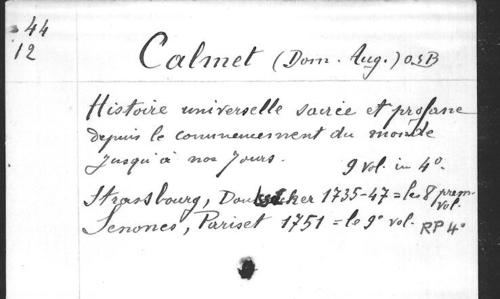 44
12
Calmet (Dom. Aug.) O.S.B
Histoire universelle sacrée et profane
depuis le commencement du monde
jusqu'à nos jours. 9 vol. in 4°.
Strasbourg, Doulsseker 1735-47 = les 8 prem. vol.
Senones, Pariset 1751 = le 9e vol. RP 4°